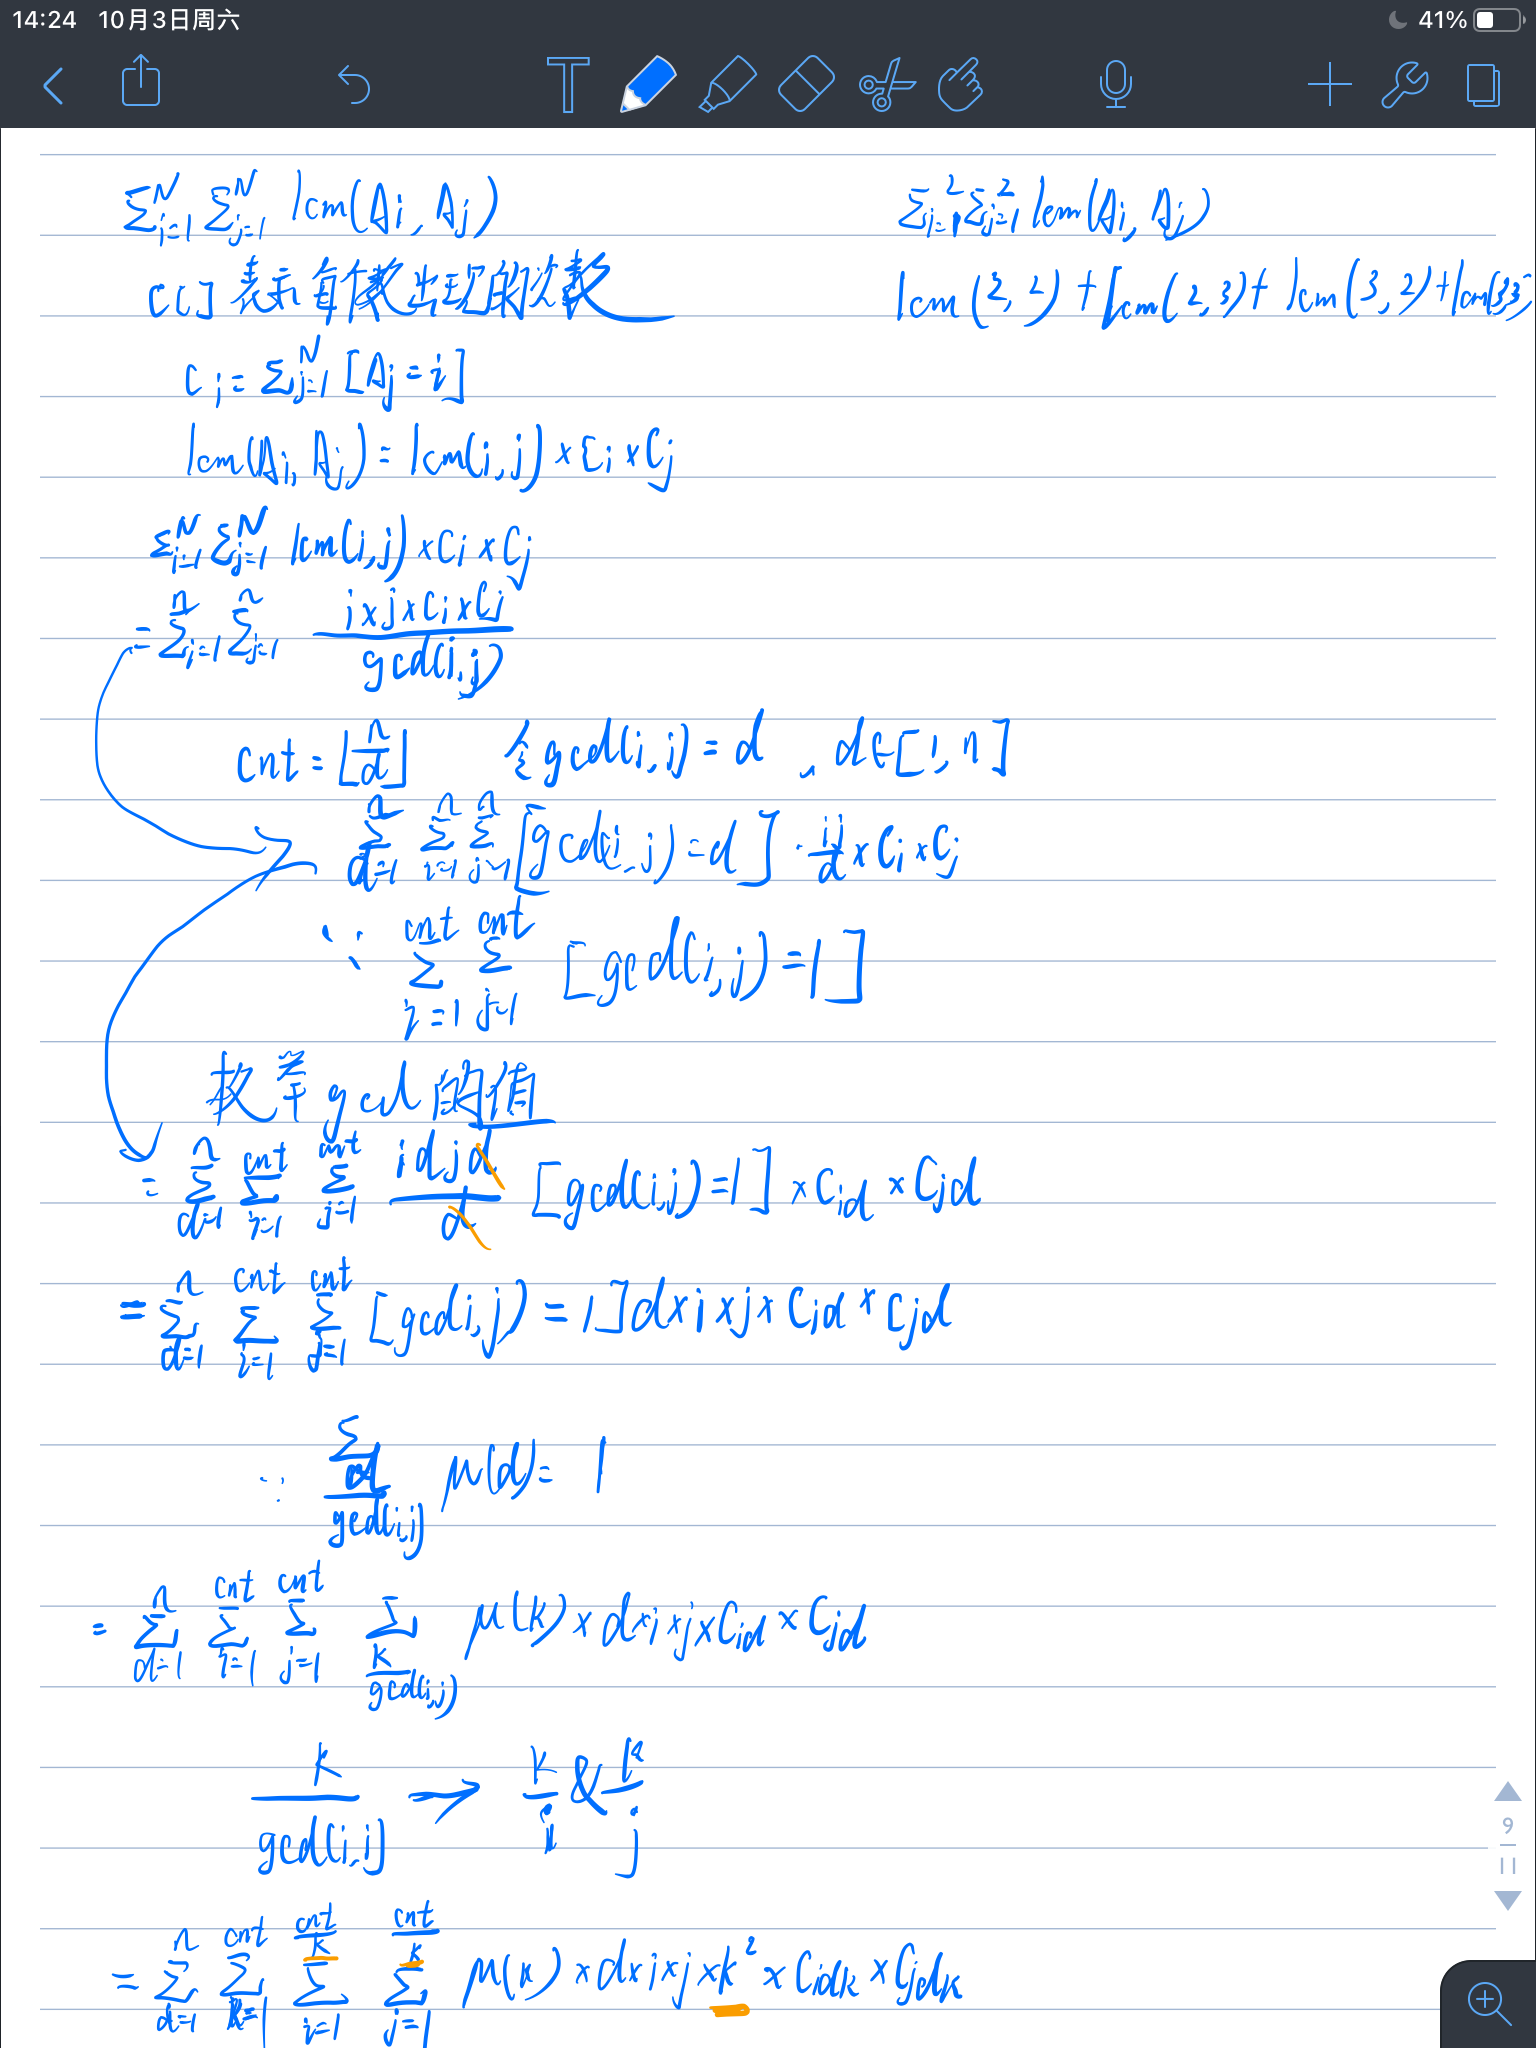 14:24 10月3日周六 41%
T
Σ_{i=1}^{N} Σ_{j=1}^{N} lcm(Ai, Aj)
Σ_{i=1}^{2} Σ_{j=1}^{2} lcm(Ai, Aj)
C[] 表示每个数出现的次数
lcm(2,2) + lcm(2,3) + lcm(3,2) + lcm(3,3)
C_i = Σ_{j=1}^{N} [Aj = i]
lcm(Ai, Aj) = lcm(i,j) × C_i × C_j
Σ_{i=1}^{N} Σ_{j=1}^{N} lcm(i,j) × C_i × C_j
= Σ_{i=1}^{n} Σ_{j=1}^{n} \frac{i×j×C_i×C_j}{gcd(i,j)}
cnt = ⌊\frac{n}{d}⌋ 令gcd(i,j) = d , d∈[1,n]
Σ_{d=1}^{n} Σ_{i=1}^{n} Σ_{j=1}^{n} [gcd(i,j)=d] · \frac{ij}{d} × C_i × C_j
∵ Σ_{i=1}^{cnt} Σ_{j=1}^{cnt} [gcd(i,j)=1]
枚举gcd的值
= Σ_{d=1}^{n} Σ_{i=1}^{cnt} Σ_{j=1}^{cnt} \frac{idjd}{d} [gcd(i,j)=1] × C_{id} × C_{jd}
= Σ_{d=1}^{n} Σ_{i=1}^{cnt} Σ_{j=1}^{cnt} [gcd(i,j)=1] d×i×j×C_{id}×C_{jd}
∵ Σ_{\frac{d}{gcd(i,j)}} μ(d) = 1
= Σ_{d=1}^{n} Σ_{i=1}^{cnt} Σ_{j=1}^{cnt} Σ_{\frac{k}{gcd(i,j)}} μ(k) × d×i×j×C_{id} × C_{jd}
\frac{k}{gcd(i,j)} → \frac{k}{i} & \frac{k}{j}
= Σ_{d=1}^{n} Σ_{k=1}^{cnt} Σ_{i=1}^{\frac{cnt}{k}} Σ_{j=1}^{\frac{cnt}{k}} μ(k) × d×i×j×k² × C_{idk} × C_{jdk}
9
11